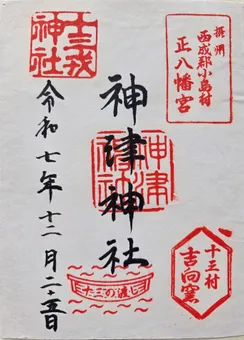 摂州
西成郡小島村
正八幡宮
十三村
吉向窯
神津神社
神津神社
十三の渡し
十三戎
神社
令和七年十二月二十五日